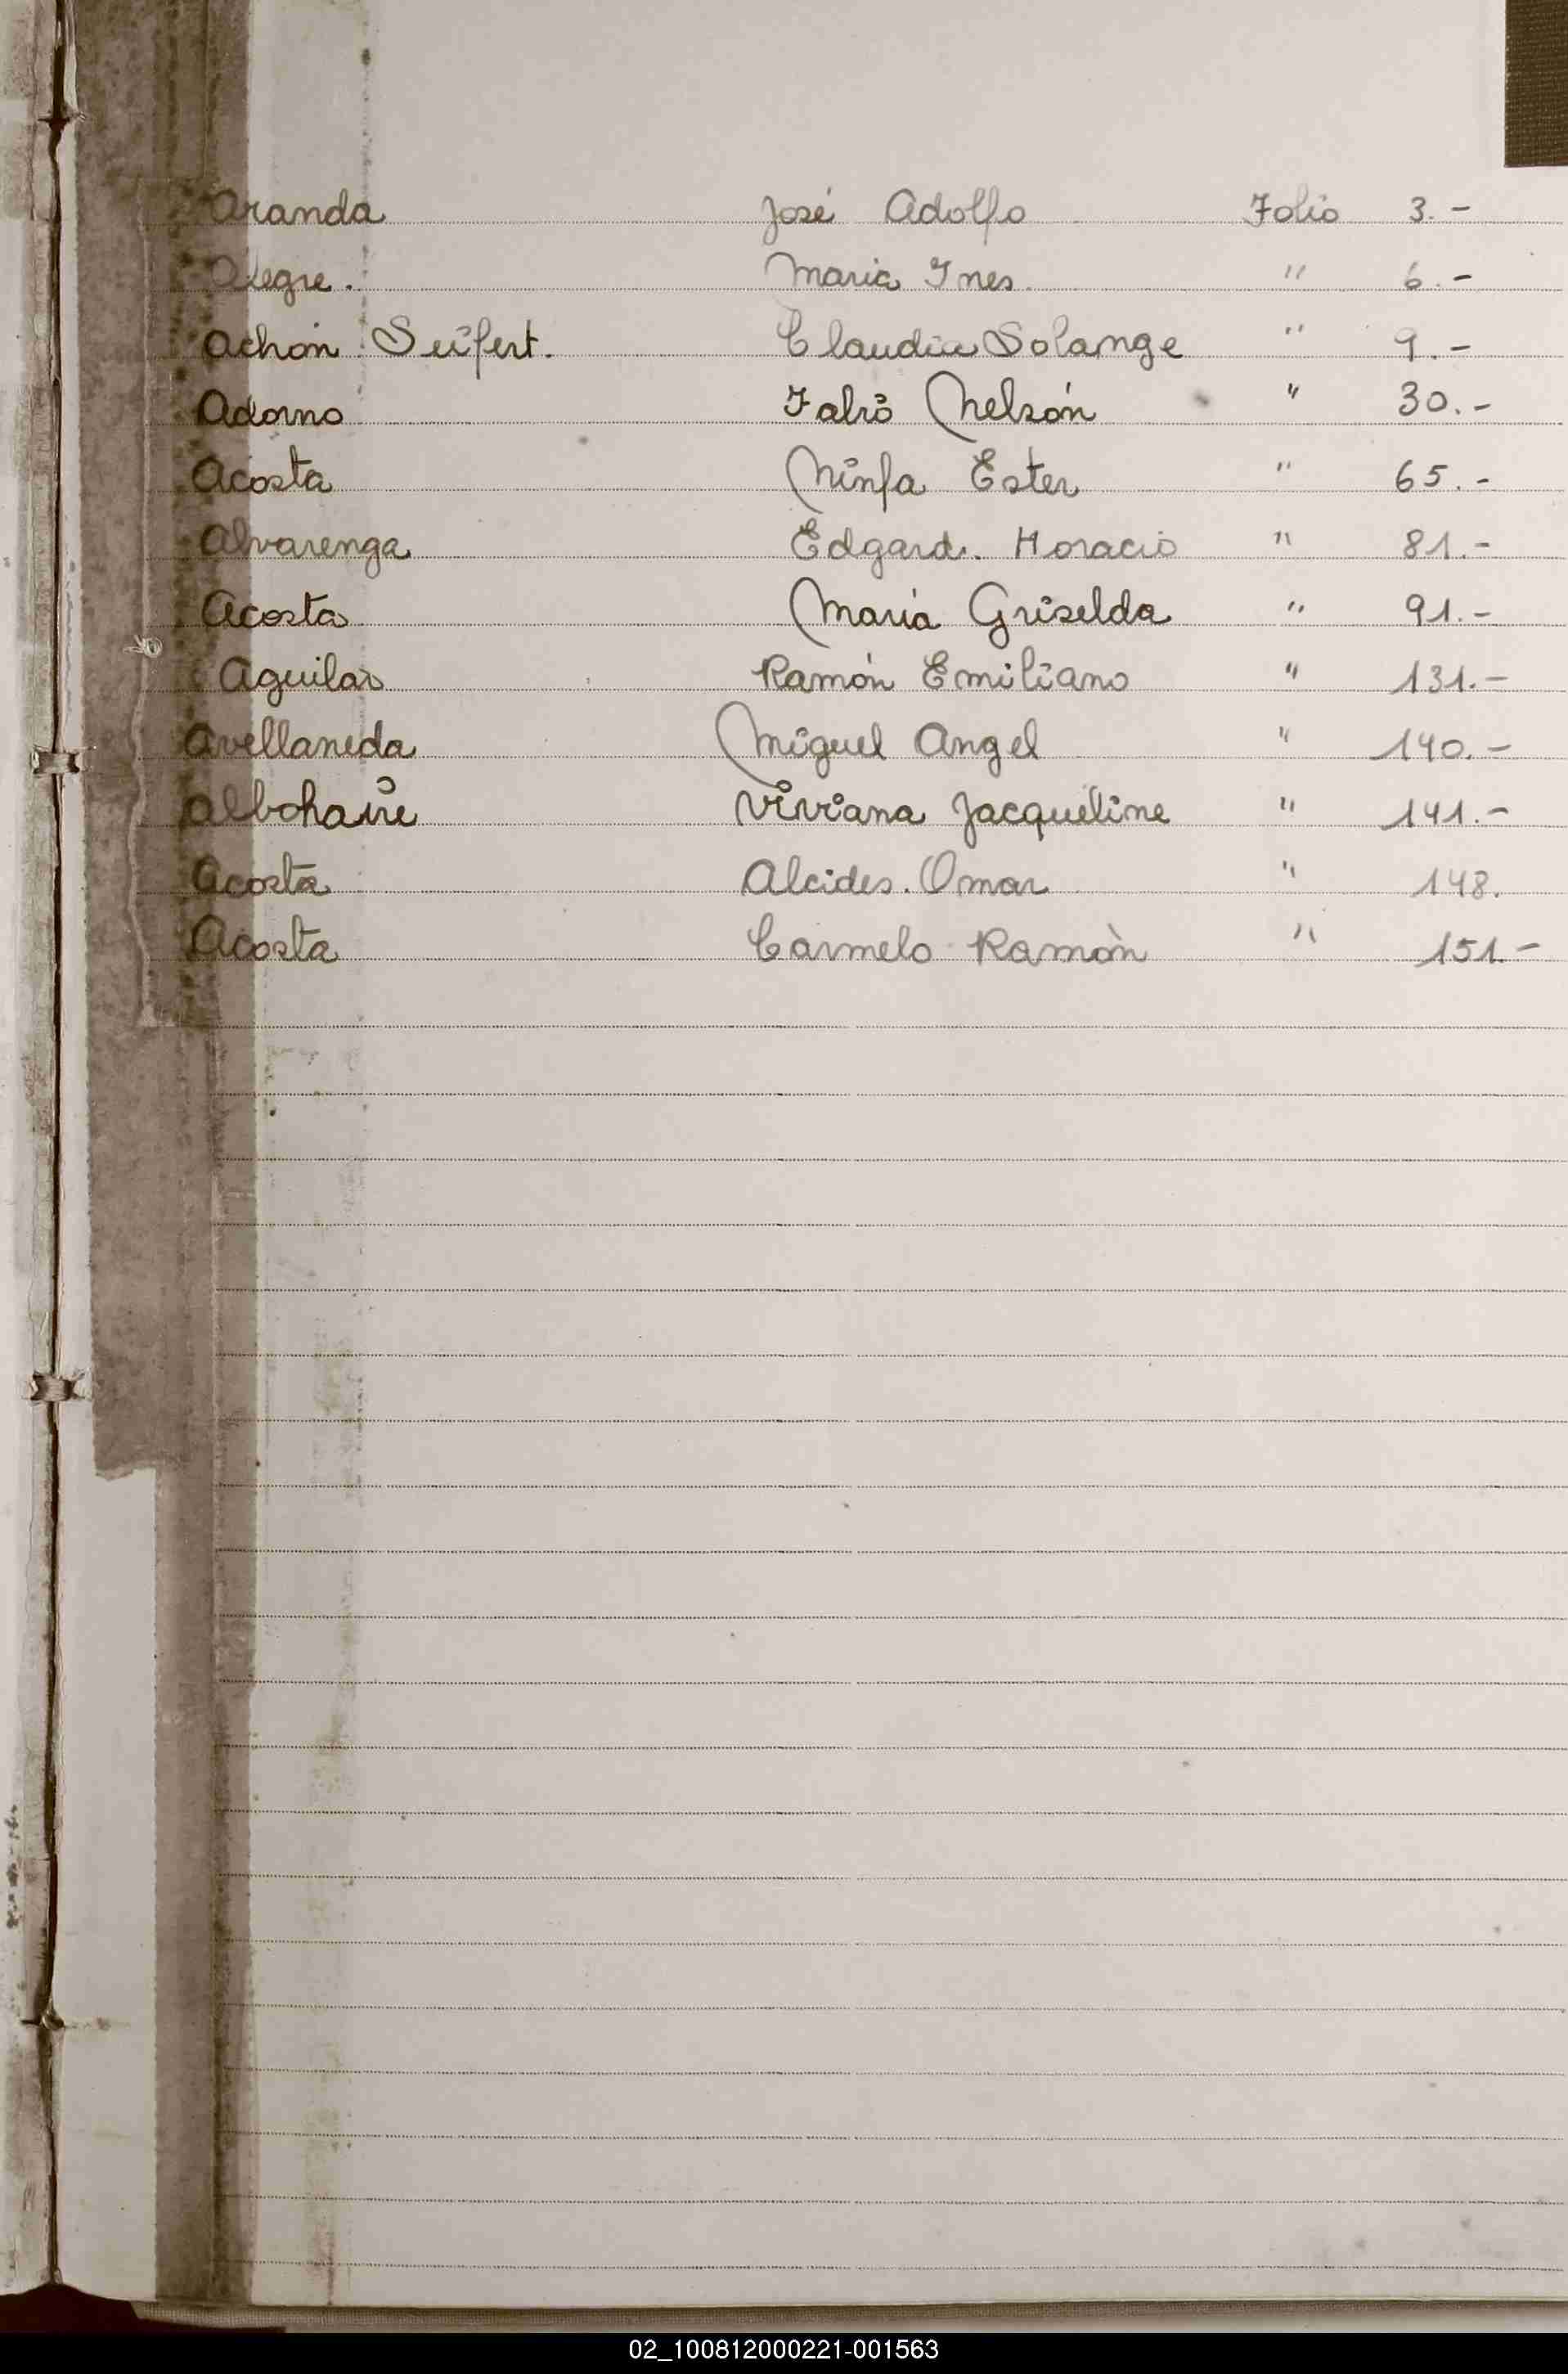 Aranda José Adolfo Folio 3.-
Alegre. Maria Ines. " 6.-
Achón Seifert. Claudia Solange " 9.-
Adorno Fabio Nelsón " 30.-
Acosta Ninfa Ester " 65.-
Alvarenga Edgard. Horacio " 81.-
Acosta María Griselda " 91.-
Aguilar Ramón Emiliano " 131.-
Avellaneda Miguel Angel " 140.-
Viviana Jacqueline " 141.-
Acosta Alcides. Omar " 148.
Acosta Carmelo Ramón " 151.-
02_100812000221-001563